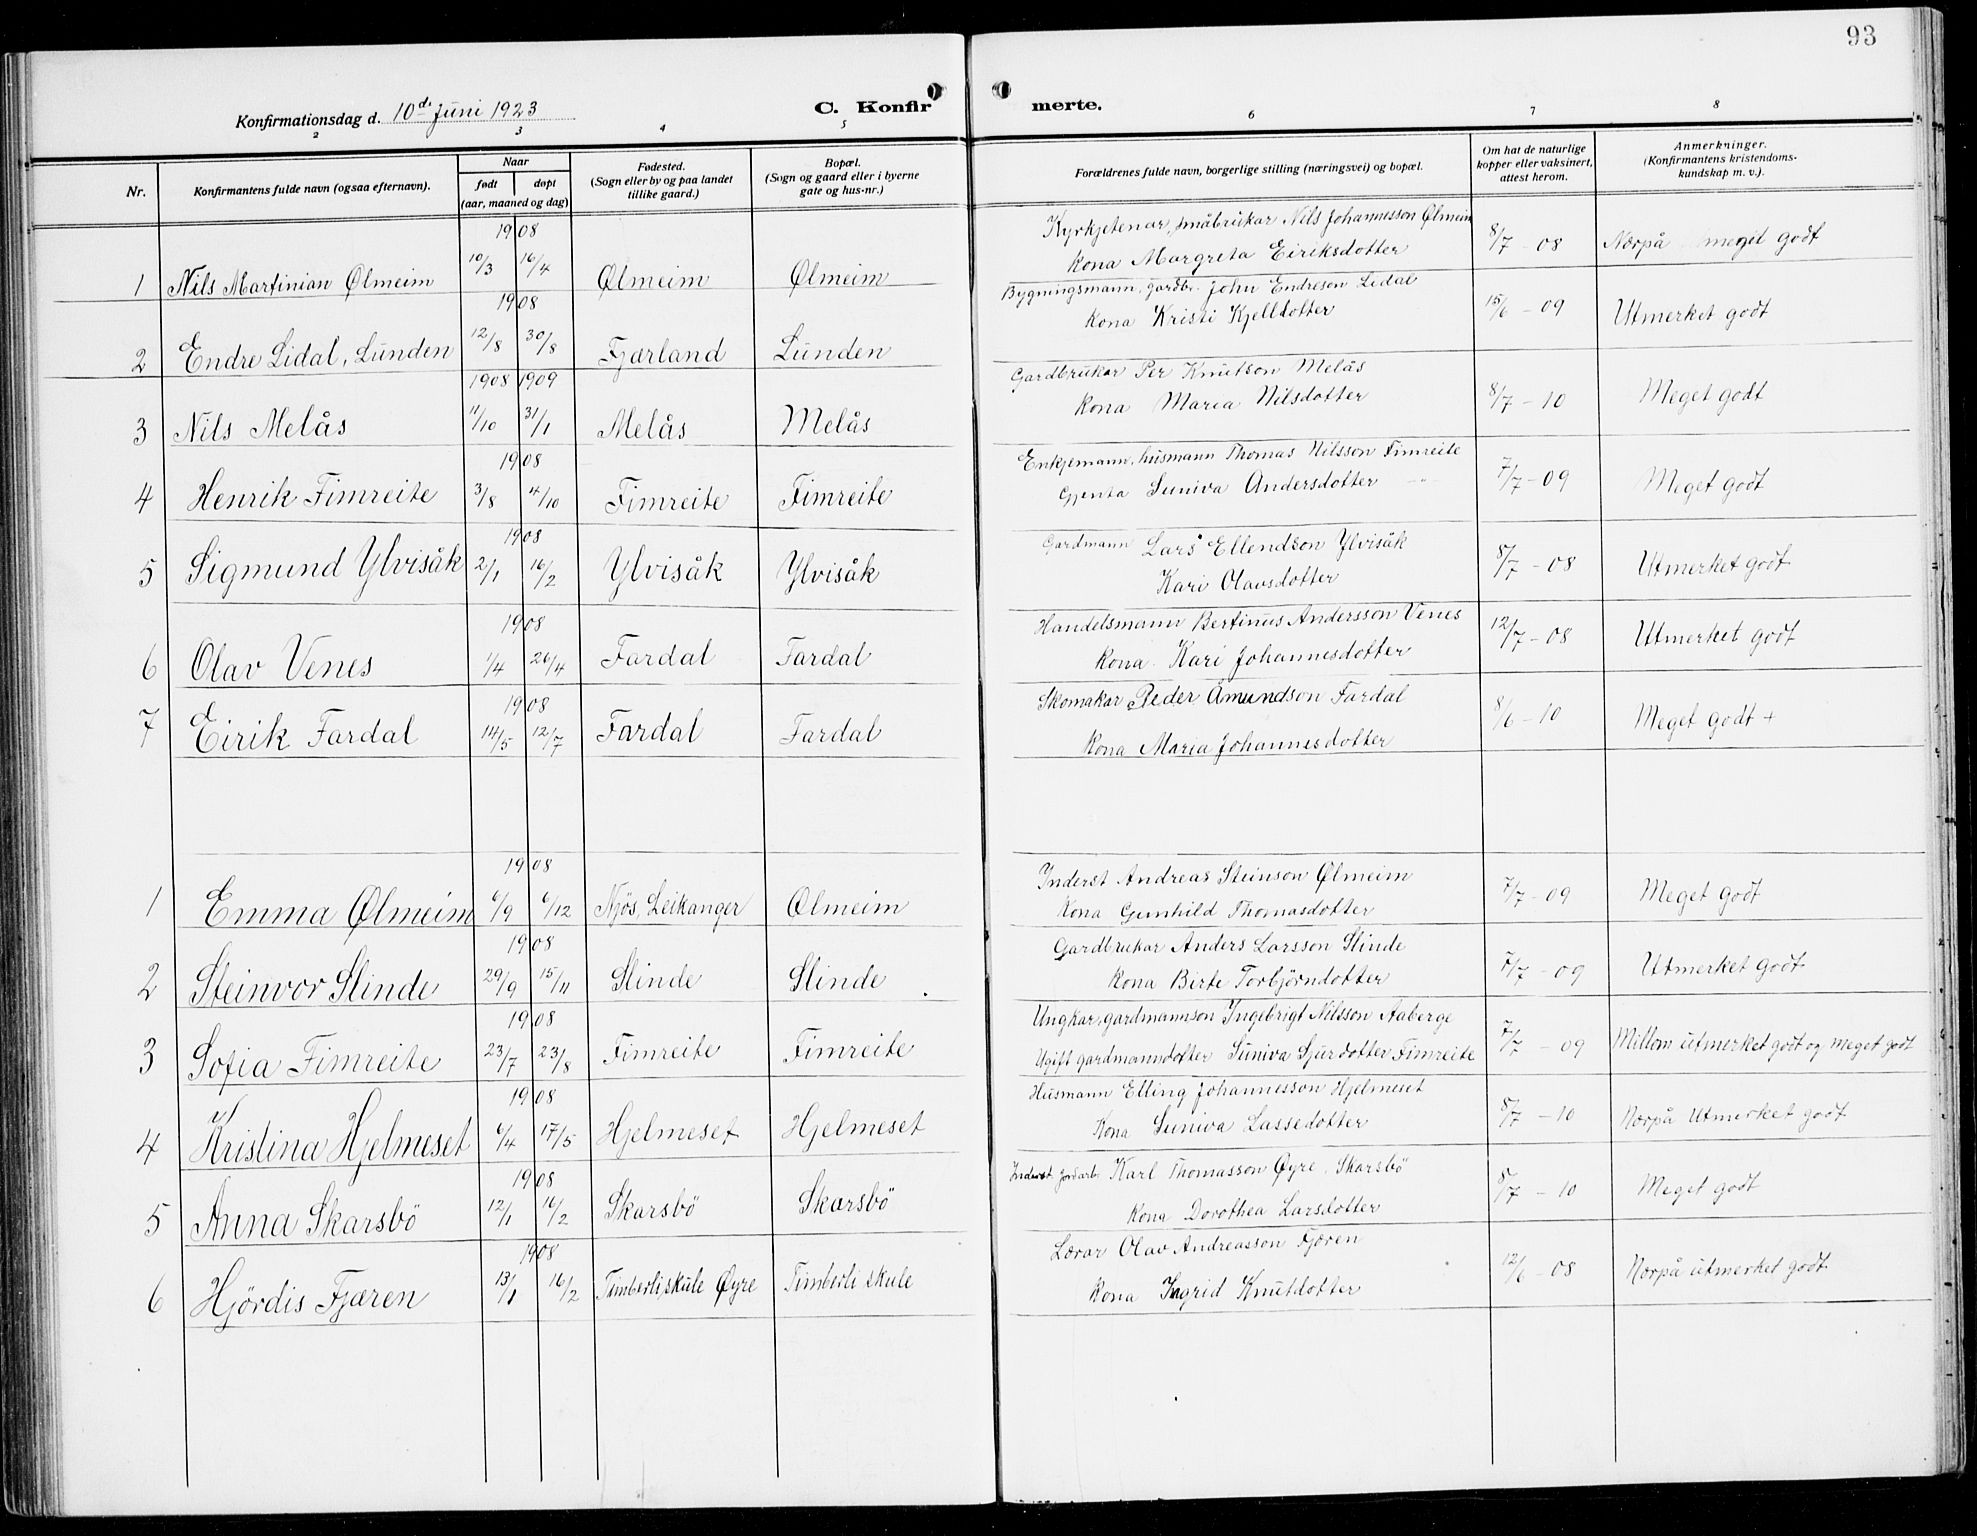 93
Konfirmationsdag d. 10de Juni 1923
C. Konfirmerte.
2 3 4 5 6 7 8
Nr.
Konfirmantens fulde navn (ogsaa efternavn).
Naar
født døpt
(aar, maaned og dag)
Fødested.
(Sogn eller by og paa landet
tillike gaard.)
Bopæl.
(Sogn og gaard eller i byerne
gate og hus-nr.)
Forældrenes fulde navn, borgerlige stilling (næringsvei) og bopæl.
Om hat de naturlige
kopper eller vaksinert,
attest herom.
Anmerkninger.
(Konfirmantens kristendoms-
kundskap m. v.).
1908
Kyrkjetenar, småbrukar Nils Johannesson Ølmeim
1 Nils Martinian Ølmeim 10/3 16/4 Ølmeim Ølmeim Kona Margreta Eiriksdotter 8/7 - 08 Nærpå meget godt
1908
Bygningsmann, gardbr. John Endreson Lidal
2 Endre Lidal, Lunden 12/8 30/8 Fjærland Lunden Kona Kristi Kjelldotter 15/6 - 09 Utmerket godt
1908 1909
Gardbrukar Per Knutson Melås
3 Nils Melås 11/10 31/1 Melås Melås Kona Maria Nilsdotter 8/7 - 10 Meget godt
1908
Enkjemann, husmann Thomas Nilsson Fimreite
4 Henrik Fimreite 3/8 4/10 Fimreite Fimreite Gjenta Suniva Andersdotter -"- 7/7 - 09 Meget godt
1908
Gardmann Lars Ellendson Ylvisåk
5 Sigmund Ylvisåk 2/1 16/2 Ylvisåk Ylvisåk Kari Olavsdotter 8/7 - 08 Utmerket godt
1908
Handelsmann Bertinus Andersson Venes
6 Olav Venes 1/4 26/4 Fardal Fardal Kona Kari Johannesdotter 12/7 - 08 Utmerket godt
1908
Skomakar Peder Åmundson Fardal
7 Eirik Fardal 14/5 12/7 Fardal Fardal Kona Maria Johannesdotter 8/6 - 10 Meget godt +
1908
Inderst Andreas Steinson Ølmeim
1 Emma Ølmeim 6/9 6/12 Njøs, Leikanger Ølmeim Kona Gunhild Thomasdotter 7/7 - 09 Meget godt
1908
Gardbrukar Anders Larsson Slinde
2 Steinvor Slinde 29/9 15/11 Slinde Slinde Kona Birte Torbjörndotter 7/7 - 09 Utmerket godt
1908
Ungkar, gardmannson Ingebrigt Nilsson Aaberge
3 Sofia Fimreite 23/7 23/8 Fimreite Fimreite Ugift gardmanndotter Suniva Sjurdotter Fimreite 7/7 - 09 Millom utmerket godt og meget godt
1908
Husmann Elling Johannesson Hjelmeset
4 Kristina Hjelmeset 6/4 17/5 Hjelmeset Hjelmeset Kona Suniva Lassedotter 8/7 - 10 Nærpå Utmerket godt
1908
Inderst. Jordarb. Karl Thomasson Øyre, Skarsbö
5 Anna Skarsbö 12/1 16/2 Skarsbö Skarsbö Kona Dorothea Larsdotter 8/7 - 10 Meget godt
1908
Lærar Olav Andreasson Fjæren
6 Hjördis Fjæren 13/1 16/2 Timberli skule Øyre Timberli skule Kona Ingrid Knutdotter 12/6 - 08 Nærpå utmerket godt